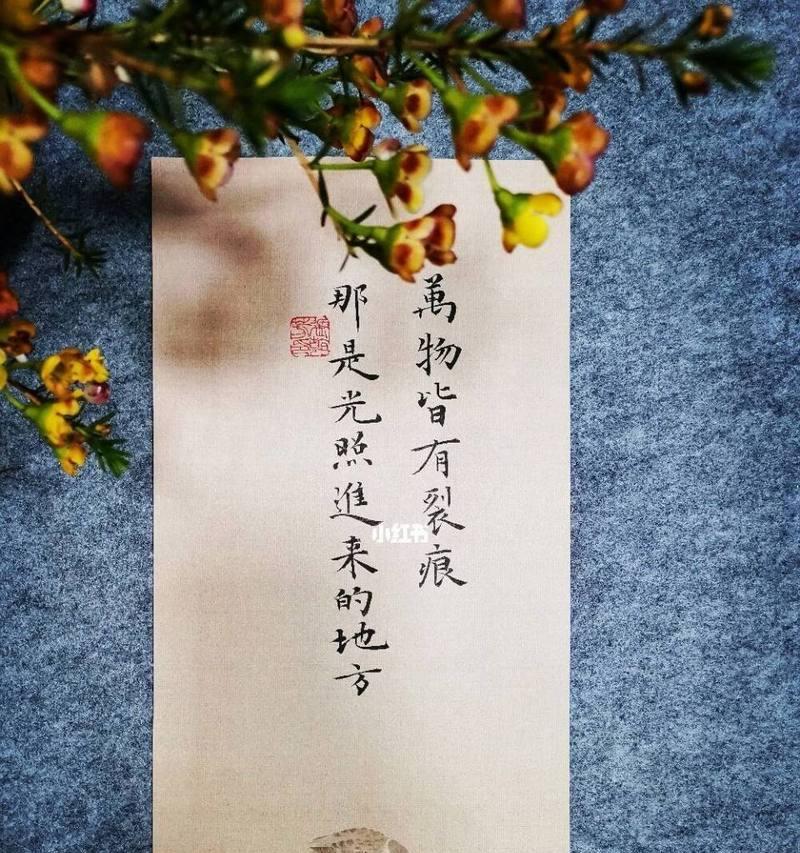 萬物皆有裂痕
那是光照進来的地方
小红书